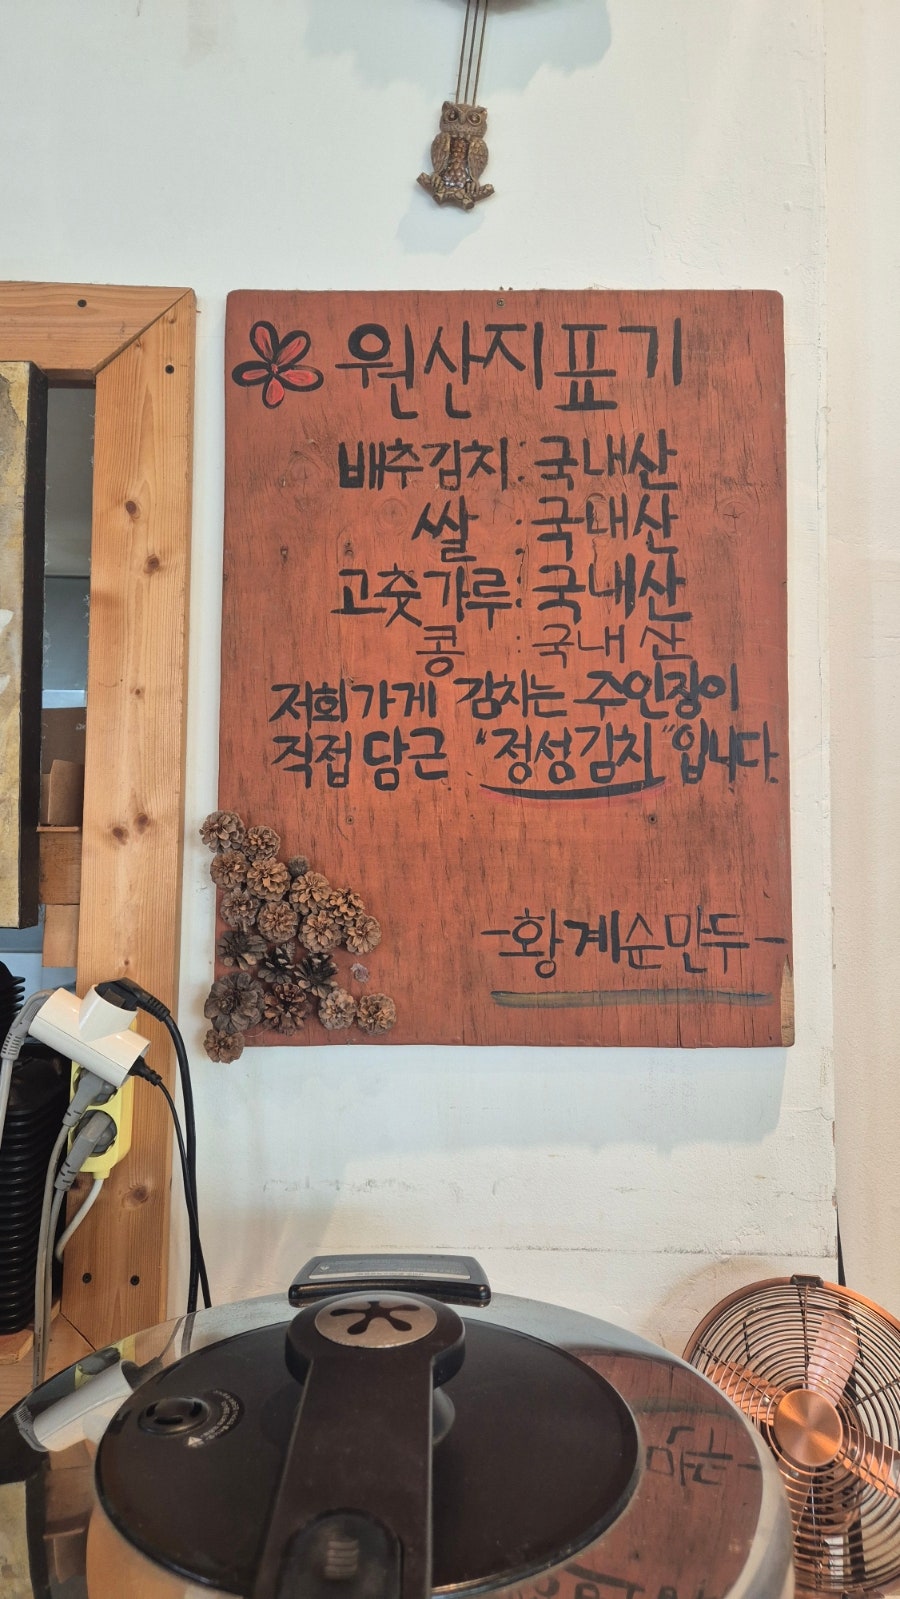 원산지표기
배추김치 : 국내산
쌀 : 국내산
고춧가루 : 국내산
콩 : 국내산
저희가게 김치는 주인장이
직접 담근 "정성김치"입니다.
-황계순만두-